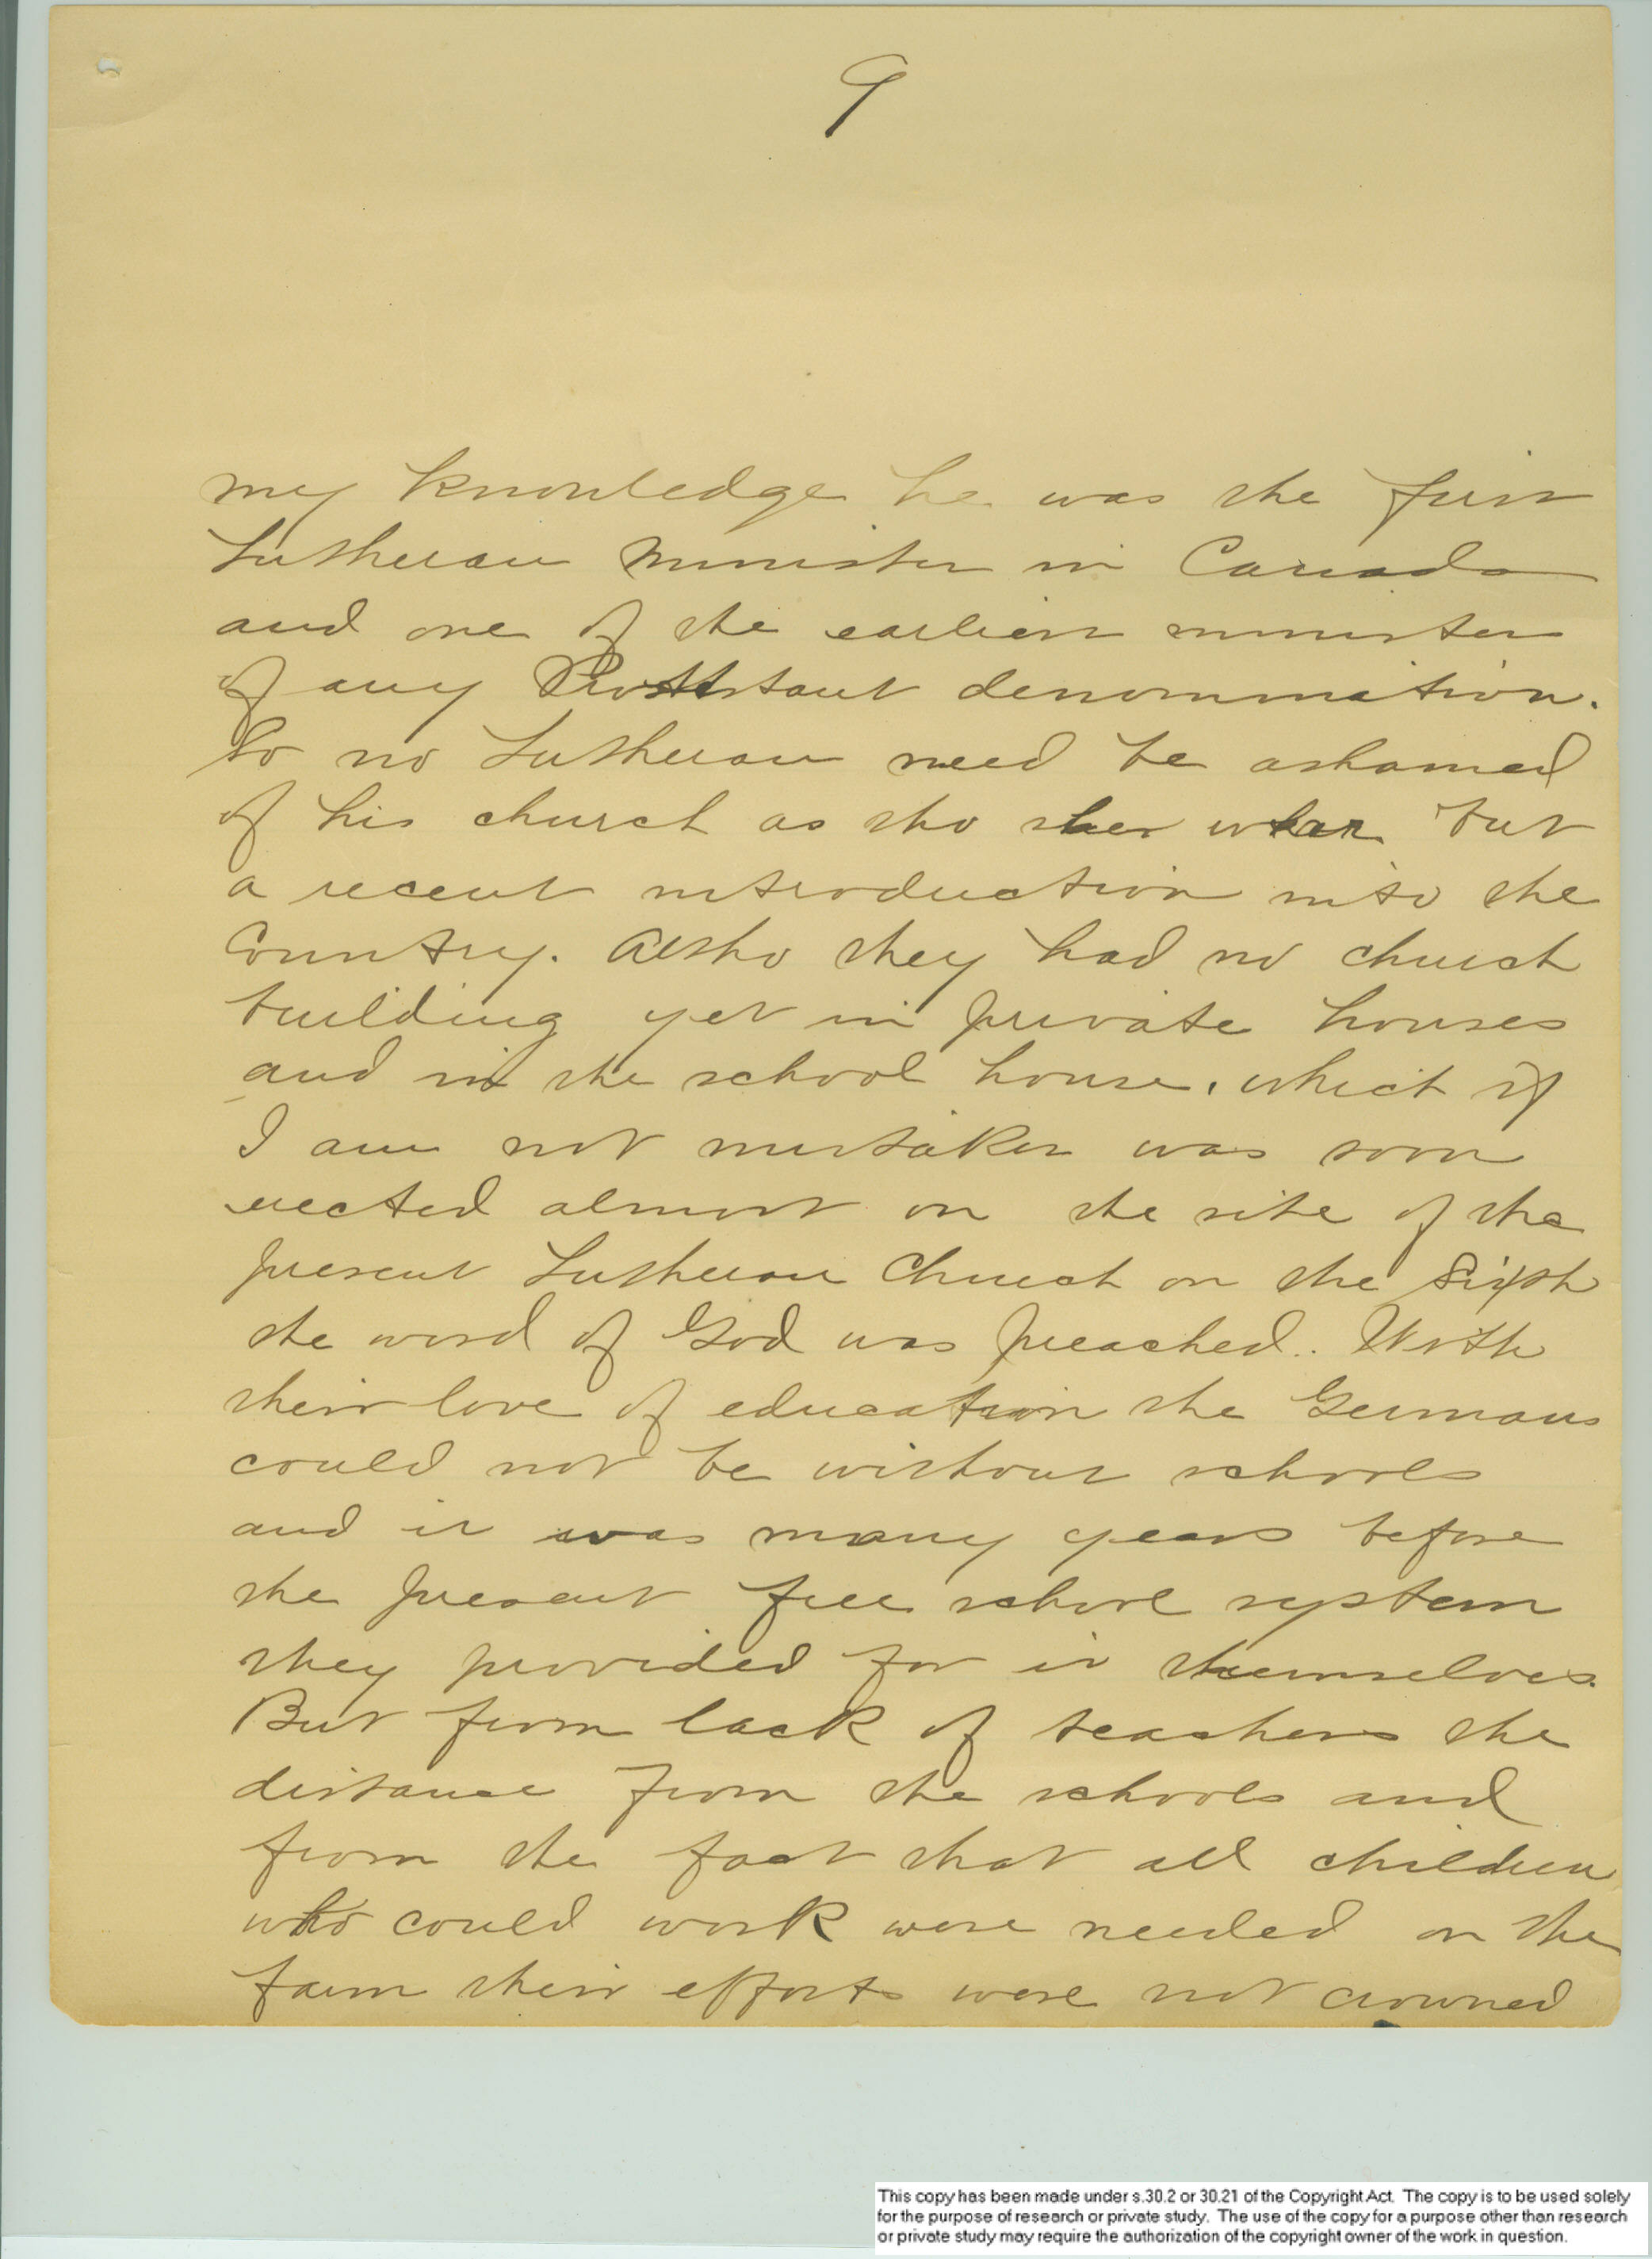 9
my knowledge he was the first
Lutheran Minister in Canada
and one of the earliest ministers
of any Protestant denomination.
So no Lutheran need be ashamed
of his church as tho but
a recent introduction into the
Country. Altho they had no church
building yet in private houses
and in the school house, which if
I am not mistaken was soon
erected almost on the site of the
present Lutheran Church on the Sixth
the word of God was preached. With
their love of education the Germans
could not be without schools
and it was many years before
the present free school system
they provided for it themselves.
But from lack of teachers the
distance from the schools and
from the fact that all children
who could work were needed on the
farm their efforts were not crowned
This copy has been made under s.30.2 or 30.21 of the Copyright Act. The copy is to be used solely
for the purpose of research or private study. The use of the copy for a purpose other than research
or private study may require the authorization of the copyright owner of the work in question.